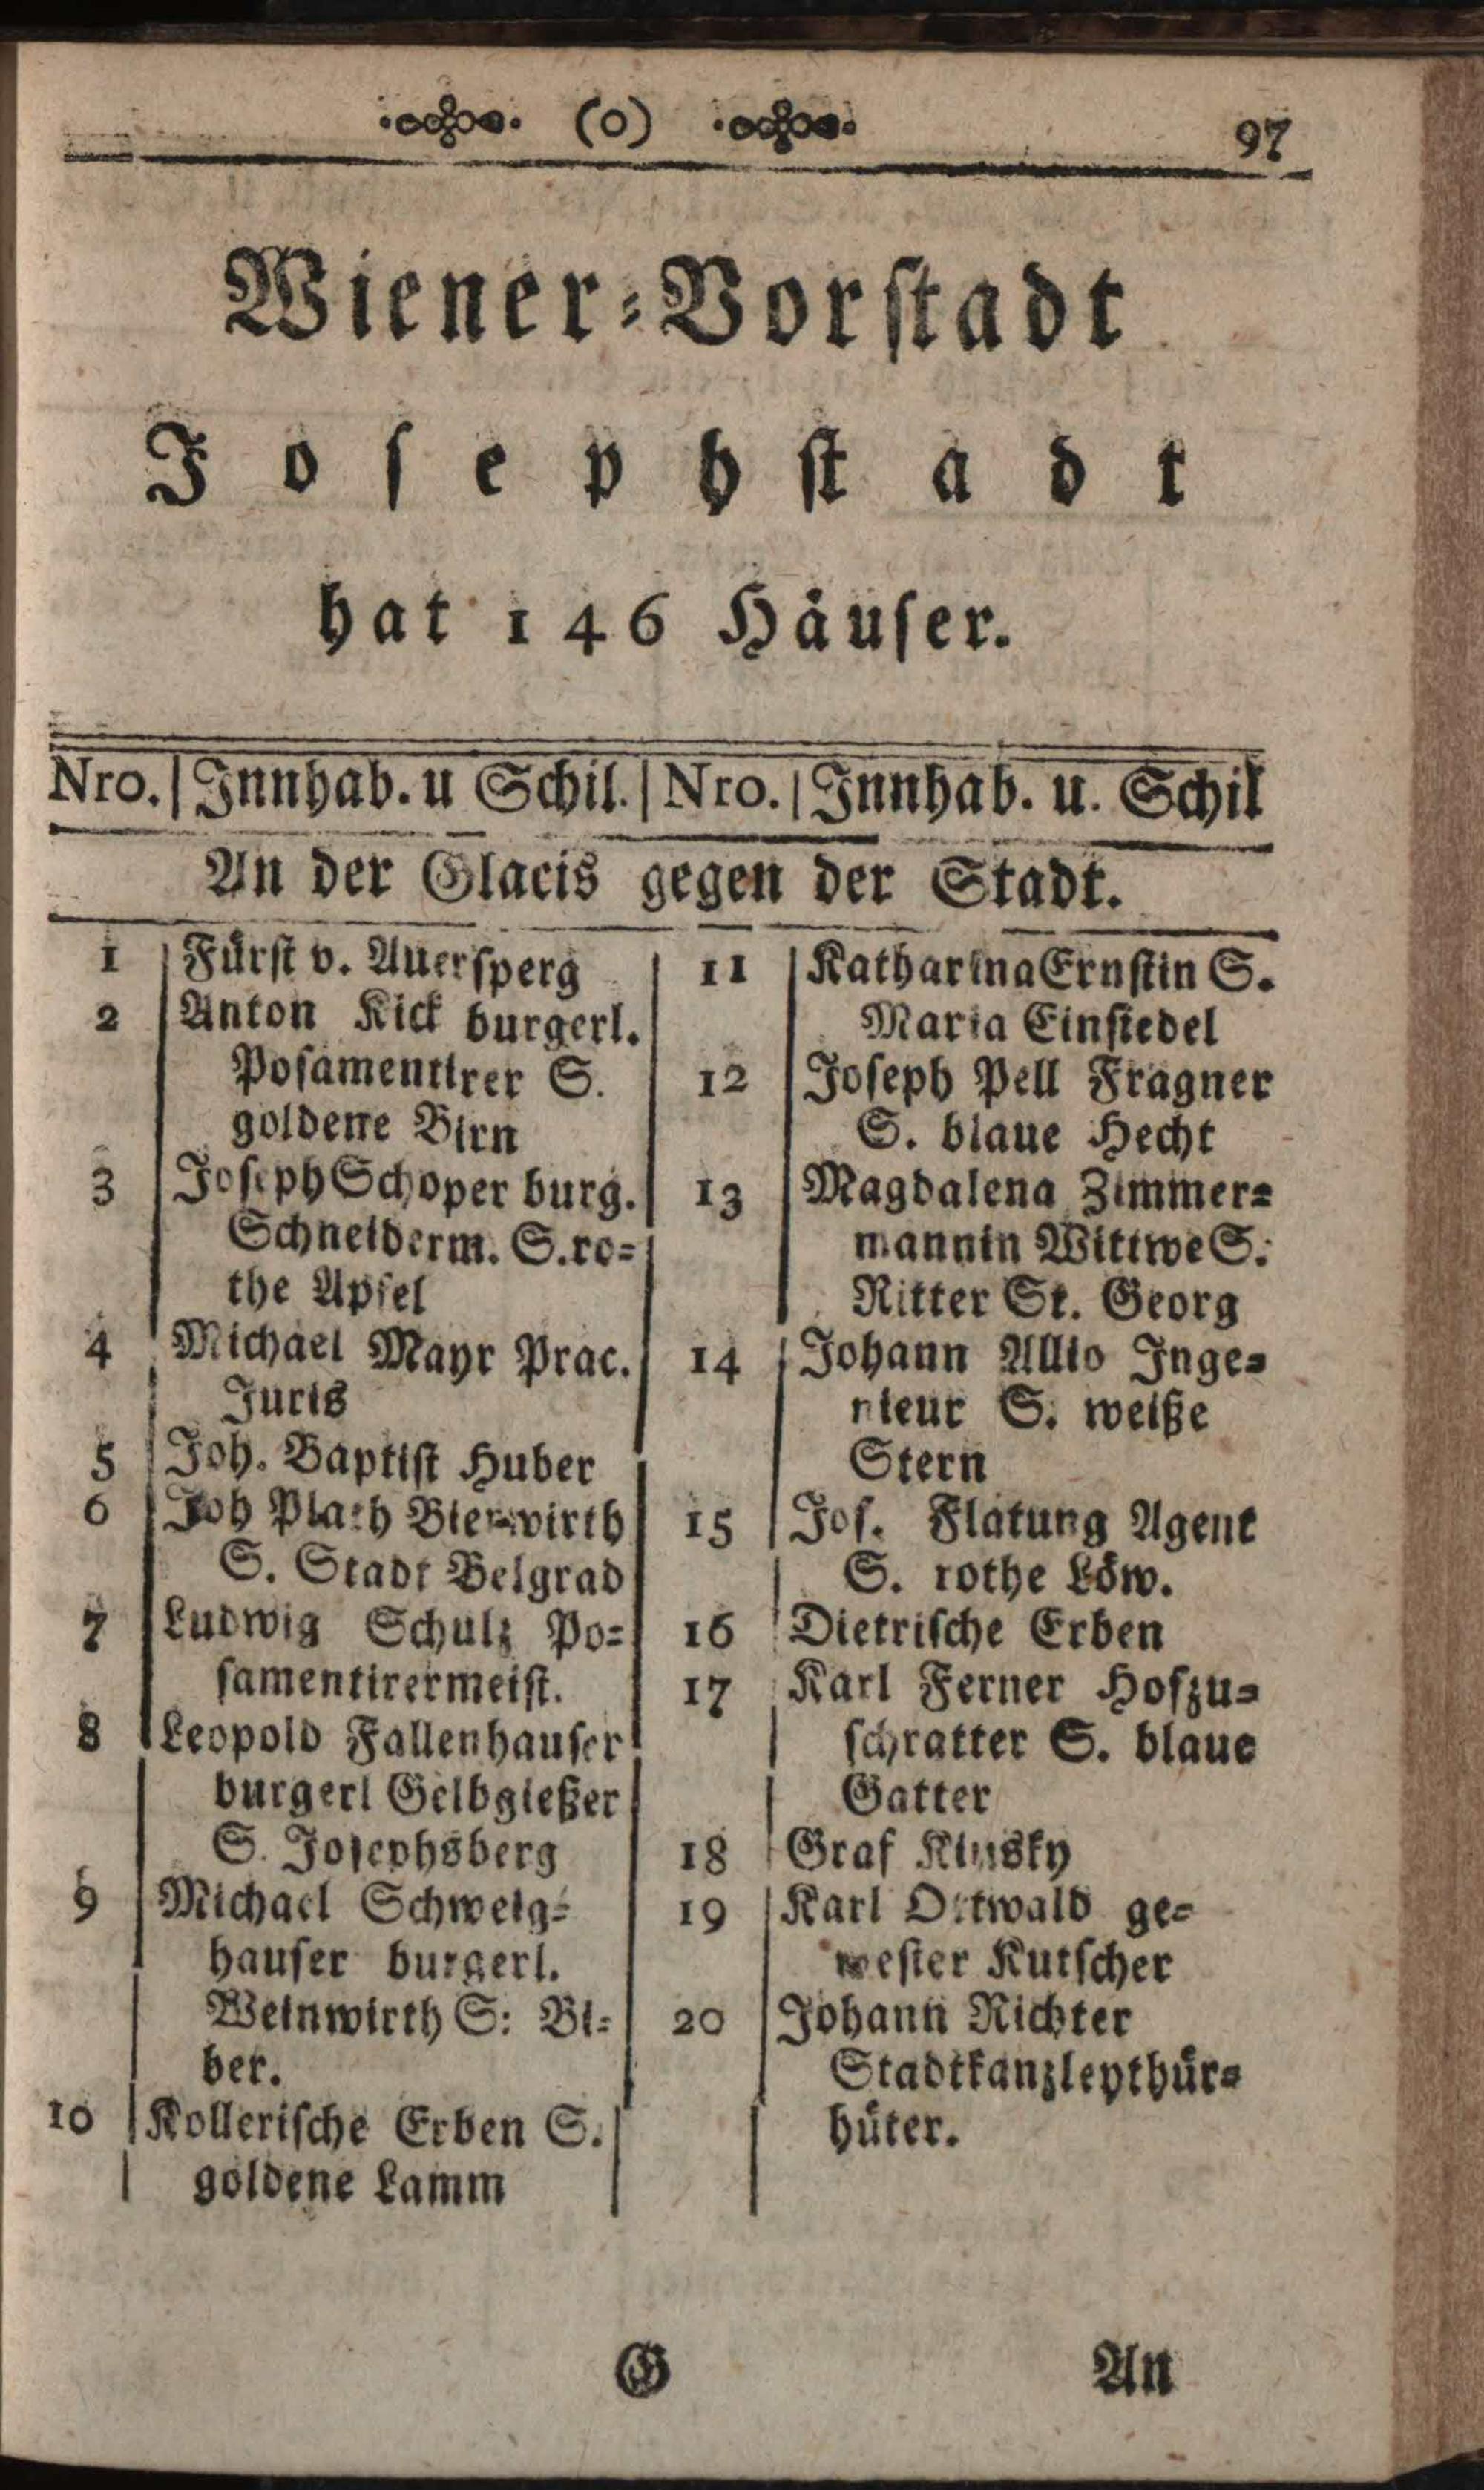 (o) 97
Wiener-Vorstadt
Josephstadt
hat 146 Häuser.
Nro. | Innhab. u Schil. | Nro. | Innhab. u. Schil
An der Glacis gegen der Stadt.
1 Fürst v. Auersperg
2 Anton Kick burgerl.
Posamentirer S.
goldene Birn
3 Joseph Schoper burg.
Schneiderm. S. ro-
the Apfel
4 Michael Mayr Prac.
Juris
5 Joh. Baptist Huber
6 Joh Plath Bierwirth
S. Stadt Belgrad
7 Ludwig Schulz Po-
samentirermeist.
8 Leopold Fallenhauser
burgerl Gelbgießer
S. Josephsberg
9 Michael Schweig-
hauser burgerl.
Weinwirth S: Bi-
ber.
10 Kollerische Erben S.
goldene Lamm
11 Katharina Ernstin S.
Maria Einsiedel
12 Joseph Pell Fragner
S. blaue Hecht
13 Magdalena Zimmer-
mannin Wittwe S.
Ritter St. Georg
14 Johann Allio Inge-
nieur S. weiße
Stern
15 Jos. Flatung Agent
S. rothe Löw.
16 Dietrische Erben
17 Karl Ferner Hofzu-
schratter S. blaue
Gatter
18 Graf Kinsky
19 Karl Ottwald ge-
wester Kutscher
20 Johann Richter
Stadtkanzleythür-
hüter.
G An